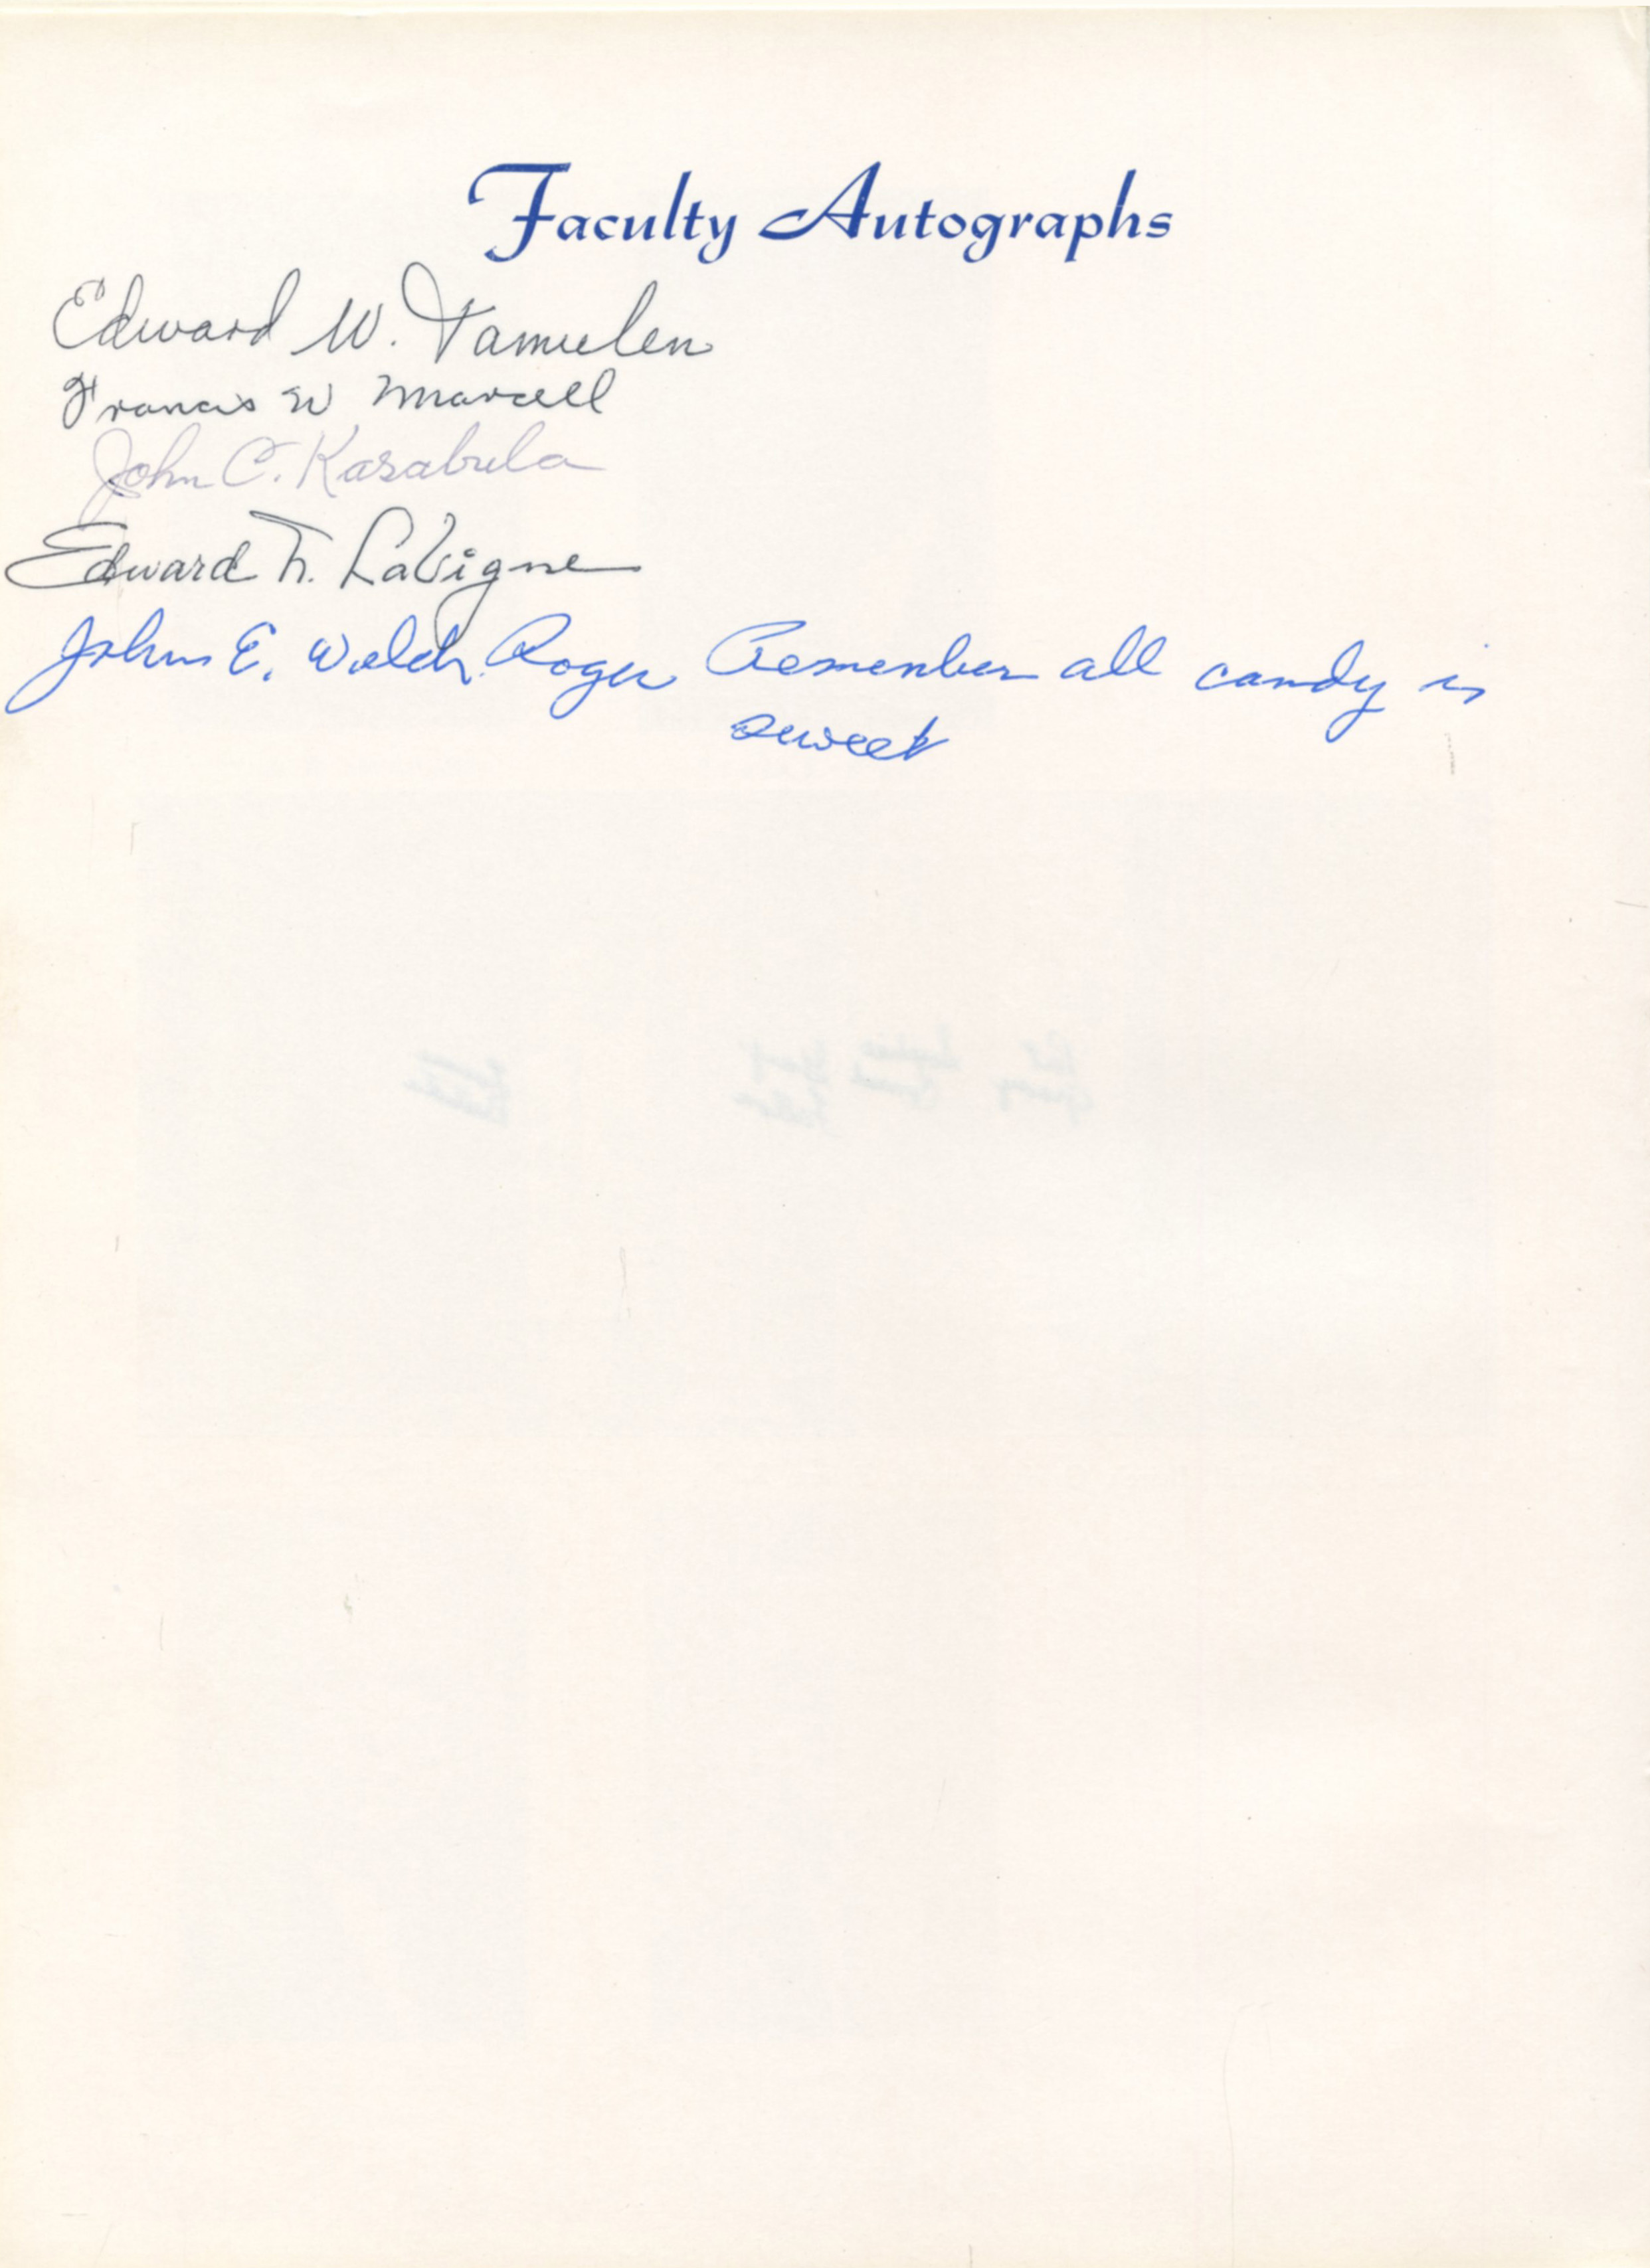 Faculty Autographs
Edward W. Tamulen
Francis W Marcell
John C. Kasabula
Edward F. LaVigne
John E. Welch. Roger Remember all candy is
sweet